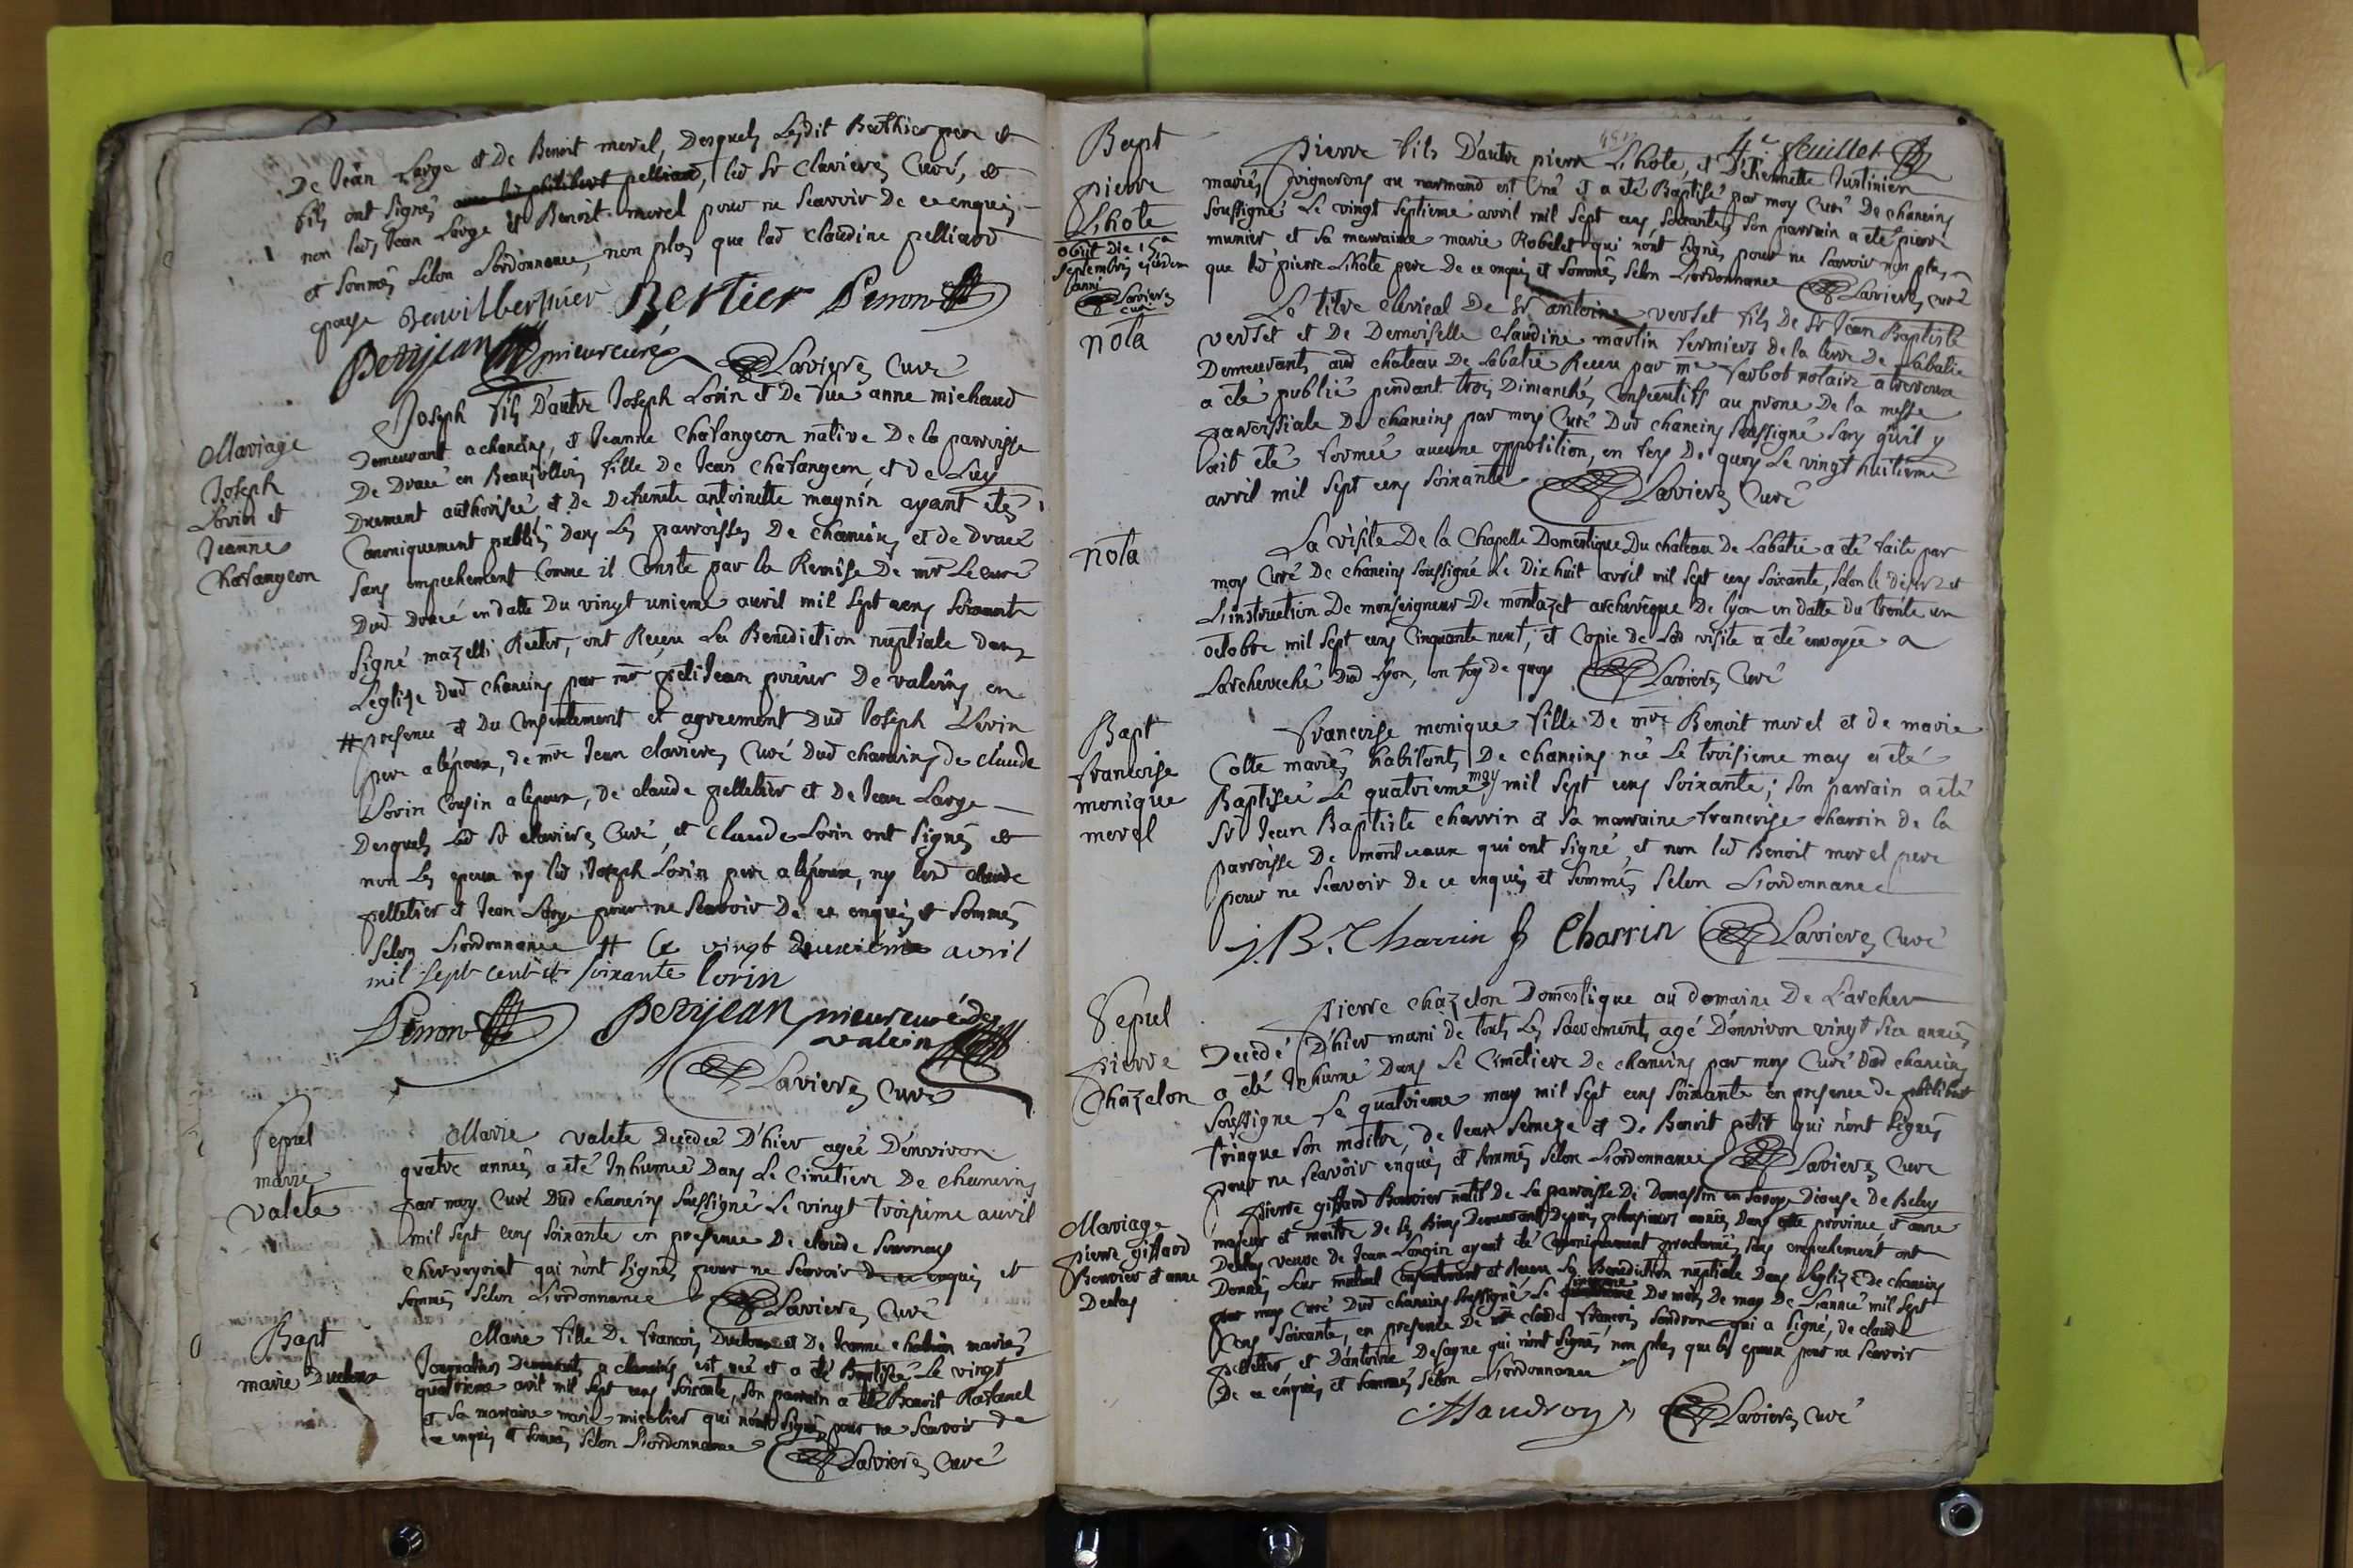 De Jean Large et De Benoit morel, Desquels Lesdit Berthier pere et
fils ont signés, led Sr Clavieres Curé, et
non led Jean Large et Benoit morel pour ne Scavoir De ce enquis
et sommés selon Lordonnance, non plus que lad claudine pelliard
epouse Benoilbertier Bertier Perron
Petitjean prieur curé Clavieres Curé
Mariage
Joseph
Lorin et
Jeanne
Chatangeon
Joseph fils D'autre Joseph Lorin et De fue anne michaud
Demeurant a chaneins, et Jeanne Chatangeon native De la parroisse
De Dracé en Beaujollois fille de Jean Chatangeon, et de Luy
Duement authorisée et De Defunte antoinette magnin ayant etés
Canoniquement publiés Dans Les parroisses De Chaneins et de Dracé
sans empechement Comme il Conste par la Remise De mr Le curé
Dud Dracé en datte Du vingt unieme avril mil sept cens soixante
signé mazelli Recter, ont Receu La Benediction nuptiale dans
Leglise dud chaneins par mr petitJean prieur De valeins en
# presence et Du Consentement et agreement Dud Joseph Lorin
pere a lépoux, de mre Jean clavieres Curé Dud chaneins, de claude
Lorin Cousin a lepoux, de claude pelletier et De Jean Large
Desquels Led Sr clavieres Curé, et Claude Lorin ont signés et
non Les epoux ny led Joseph Lorin pere a lépoux, ny led claude
pelletier et Jean Large pour ne Scavoir De ce enquis et sommés
selon Lordonnance # Ce vingt deuxième avril
mil sept cent et soixante lorin
Perron Petitjean prieur curé de
valein
Clavieres Curé
Sepul
marie
valete
Marie valete Decedée D'hier agée D'environ
quatre années a été Inhumée Dans Le Cimetiere De chaneins
par moy Curé Dud chaneins soussigné Le vingt troisieme avril
mil sept cens soixante en presence De claude
qui n'ont signés pour ne Scavoir De ce enquis et
sommés selon Lordonnance Clavieres Curé
Bapt
marie
Marie fille De francois et De Jeanne mariés
Journaliers Demeurants a chaneins est née et a été Baptisée Le vingt
quatrieme avril mil sept cens soixante, son parrain a été Benoit
et sa marraine marie micolier qui n'ont signés pour ne Scavoir de
ce enquis et sommés selon Lordonnance Clavieres Curé
4e feuillet
Bapt
pierre
Lhote
obiit die 15a
septembris ejusdem
anni
Clavieres
curé
pierre fils D'autre pierre Lhote, et D'Etiennette Justinien
mariés, vignerons au normand est Né et a été Baptisé par moy Curé De chaneins
soussigné Le vingt septieme avril mil sept cens soixante, son parrain a été pierre
munier et sa marraine marie Robelet qui n'ont signés pour ne scavoir non plus
que led pierre Lhote pere De ce enquis et sommés selon Lordonnance Clavieres curé
nota
Le titre Clerical De Sr antoine verset fils De Sr Jean Baptiste
verset et De Demoiselle Claudine martin fermiers de la terre de Labatie
Demeurants aud chateau De Labatie Receu par me notaire a trevoux
a été publié pendant trois Dimanches Consecutifs au prone De la messe
paroissiale De chaneins par moy Curé Dud chaneins soussigné sans quil y
ait été formée aucune opposition, en foy De quoy Le vingt huitieme
avril mil sept cens soixante Clavieres Curé
nota
La visite De la Chapelle Domestique Du chateau De Labatie a été faite par
moy Curé De chaneins soussigné Le Dix huit avril mil sept cens soixante, selon le desir et
L'instruction De monseigneur De montazet archevêque De lyon en datte du trente un
octobre mil sept cens Cinquante neuf, et Copie de Lad visite a été envoyée a
Larcheveché Dud Lyon, en foy de quoy Clavieres Curé
Bapt
francoise
monique
morel
francoise monique fille De mre Benoit morel et de marie
Colte mariés habitants De chaneins née Le troisieme may a été
Baptisée Le quatrieme may mil sept cens soixante; son parrain a été
Sr Jean Baptiste charrin et sa marraine francoise charrin de la
parroisse De montceaux qui ont signé, et non led Benoit morel pere
pour ne scavoir De ce enquis et sommés selon Lordonnance
J. B. Charrin f Charrin Clavieres Curé
Sepul
pierre
Chazelon
pierre chazelon Domestique au domaine De Larcher
Decedé D'hier muni de tous Les sacrements agé D'environ vingt six années
a été Inhumé Dans Le Cimetiere De chaneins par moy Curé Dud chaneins
soussigné Le quatrieme may mil sept cens soixante en presence de philibert
trinque son maitre, de Jean Semeze et De Benoit petit qui n'ont signés
pour ne scavoir enquis et sommés selon Lordonnance Clavieres Curé
Mariage
pierre giffard
Bouvier et anne
Deslas
pierre giffard Bouvier natif de La parroisse De Domassin en savoye Diocese De Beley
majeur et maitre de ses Biens Demeurant Depuis plusieurs années Dans cette province, et anne
Deslas veuve de Jean Longin ayant été Canoniquement proclamés sans empechement ont
Donnés Leur mutuel Consentement et Receu La Benediction nuptiale Dans Leglise de chaneins
par moy Curé Dud chaneins soussigné Le Du mois De may De Lannée mil sept
Cens soixante, en presence De mre claude francois Landron qui a signé, de claude
pelletier et D'antoine Desagne qui n'ont signés, non plus que les epoux pour ne scavoir
De ce enquis et sommés selon Lordonnance
Clavieres Curé